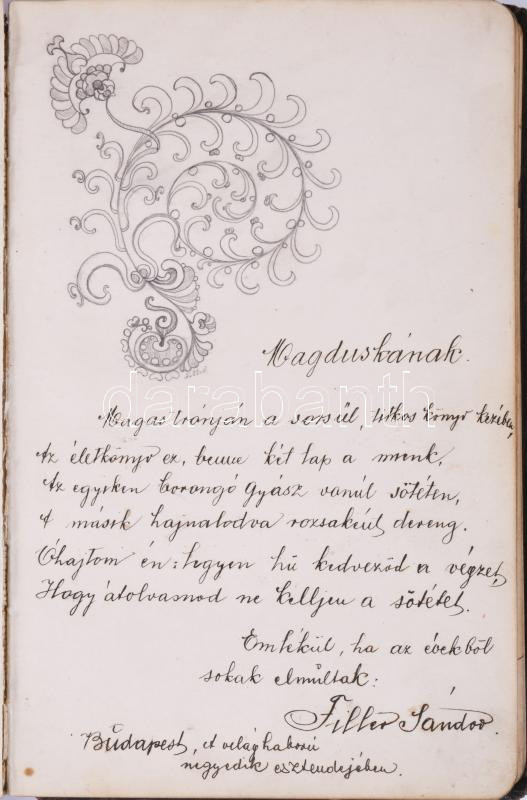 Magduskának.
Magas trónján a sors ül, titkos könyv kezében,
Az életkönyv ez, benne két lap a mienk,
Az egyiken borongó gyász vonúl sötéten,
A másik hajnalodva rozsakéút dereng.
Óhajtom én: legyen hű kedveződ a végzet,
Hogy átolvasnod ne kelljen a sötétet.
Emlékül, ha az évekből
sokak elmúltak:
Filler Sándor.
Budapest, A világháború
negyedik esztendejében.
darabanth